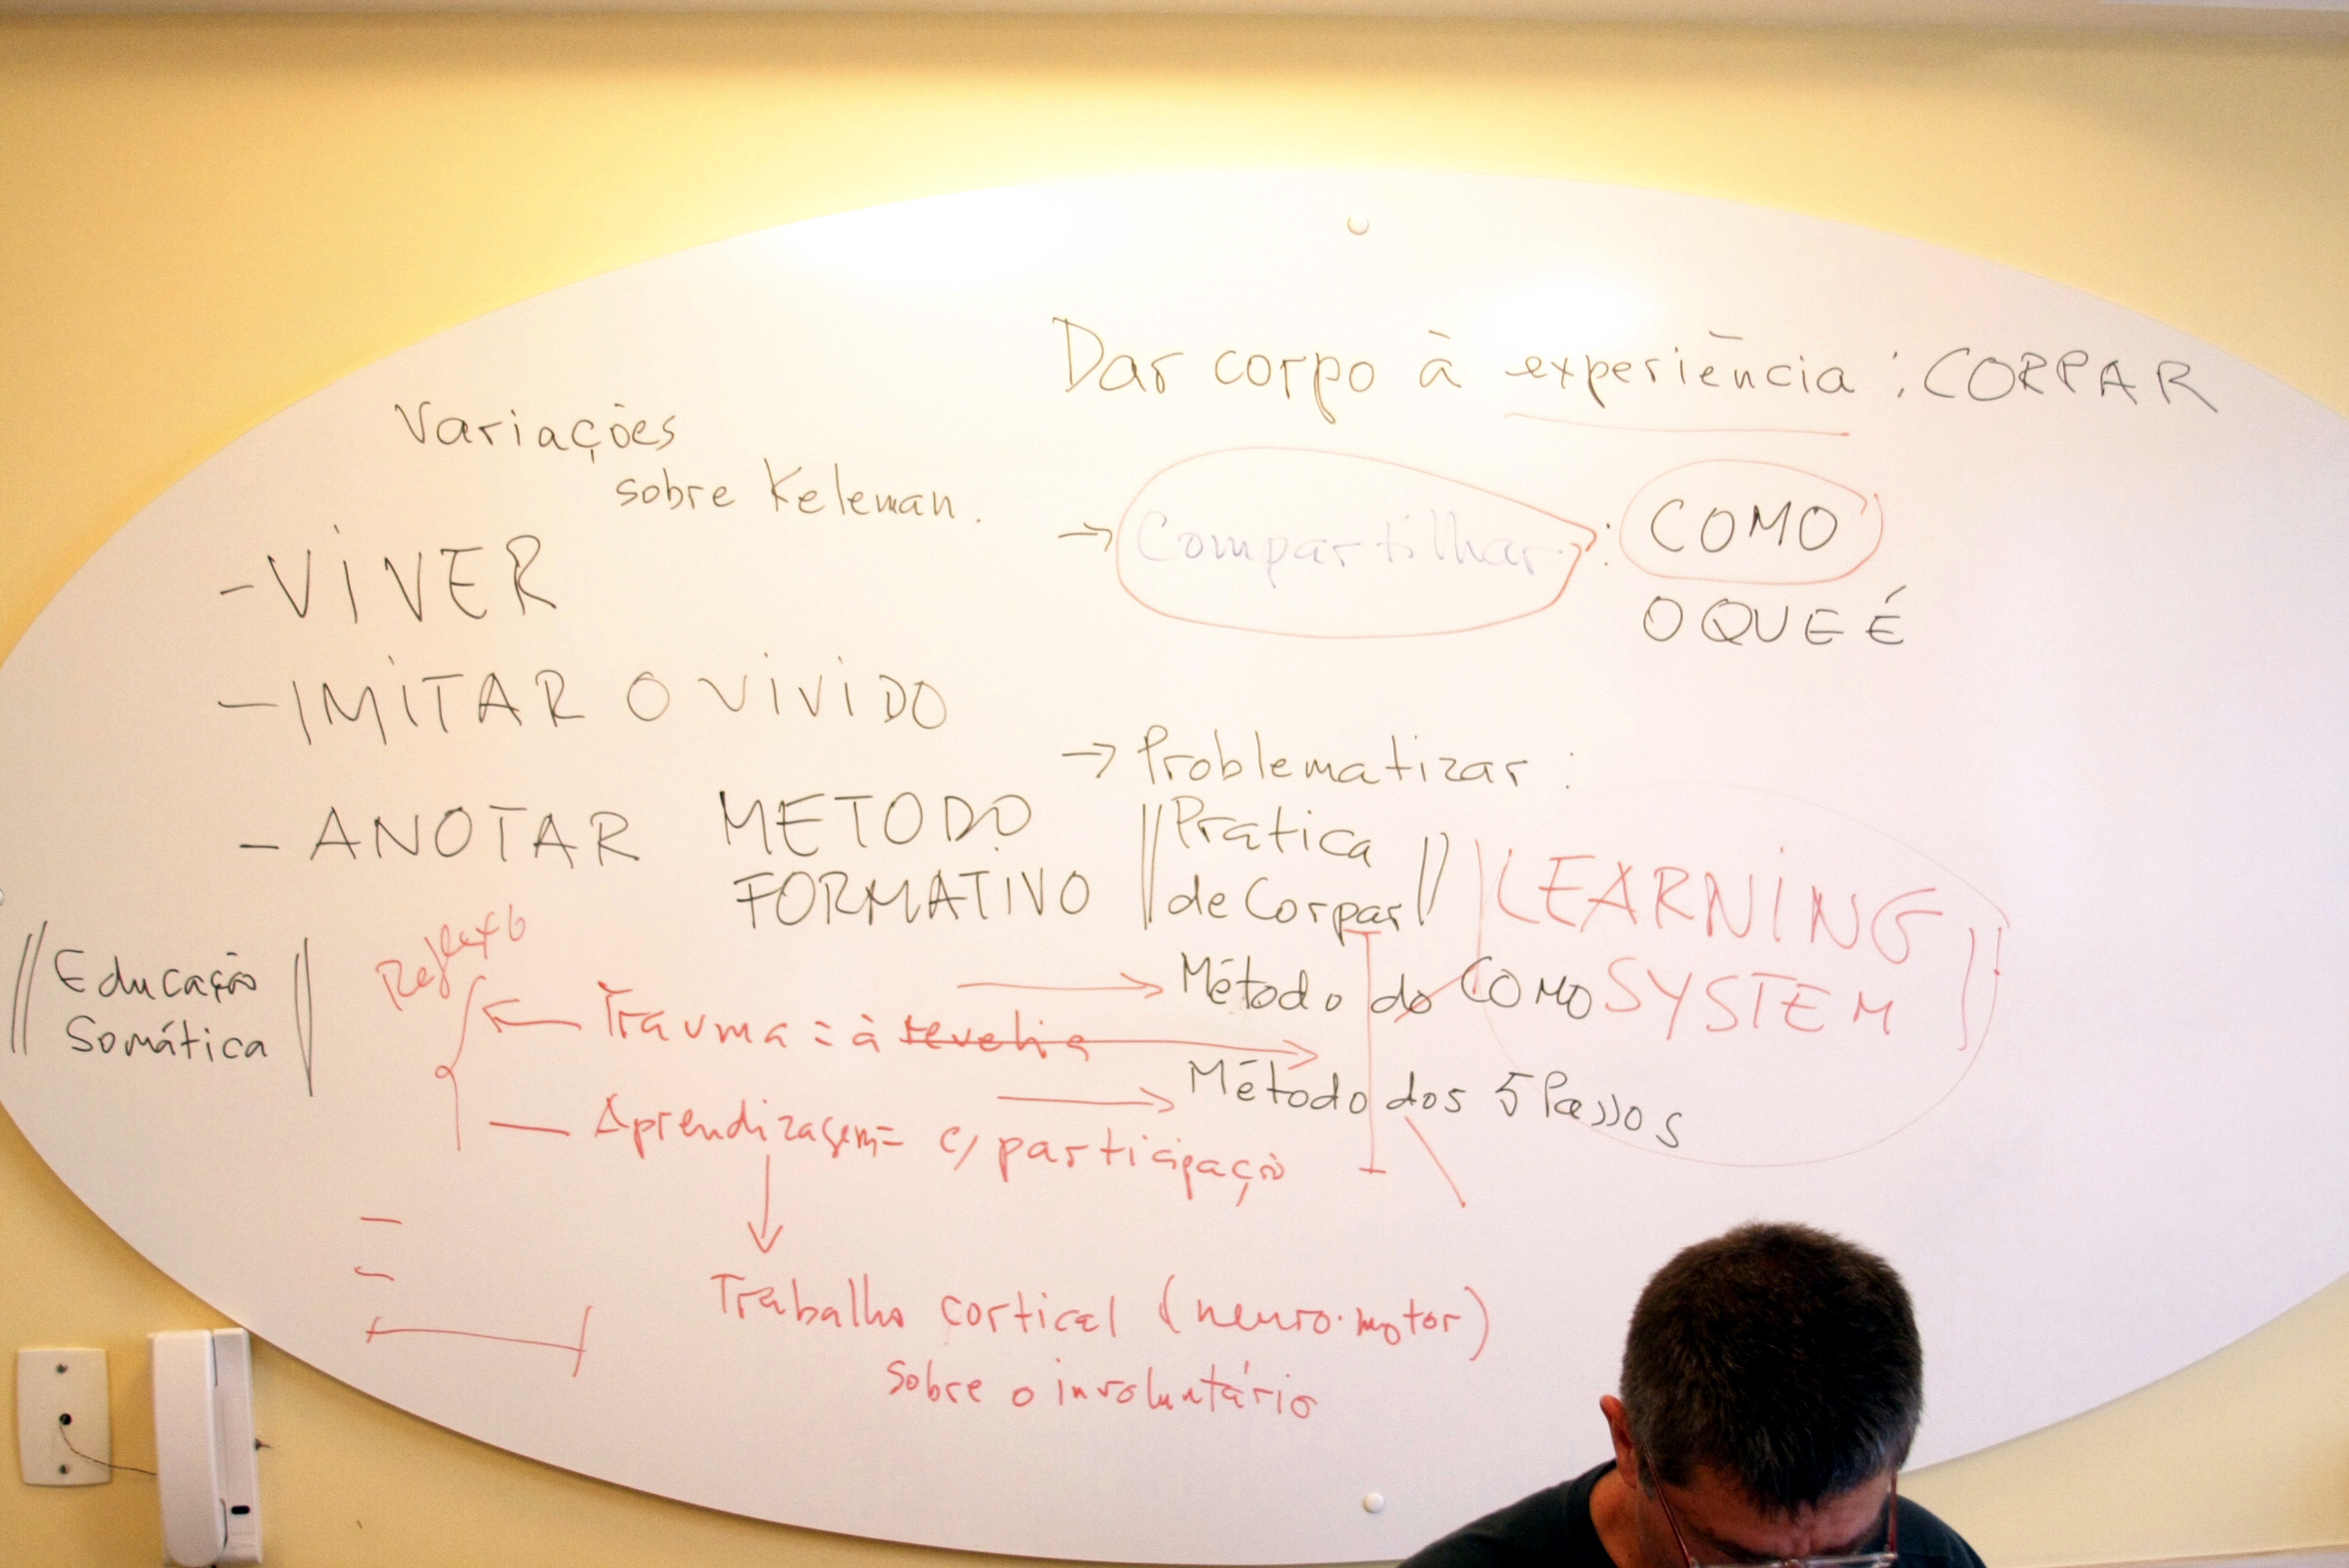 Dar corpo à experiência : CORPAR
Variações
sobre Keleman.
→ Compartilhar : COMO
O QUE É
- VIVER
- IMITAR O VIVIDO
→ Problematizar :
- ANOTAR METODO
FORMATIVO
|| Pratica
de Corpar ||
LEARNING
SYSTEM
|| Educação
Somática |
Reflexo
→ Método do COMO
← Trauma = à revelia
→ Método dos 5 Passos
— Aprendizagem = c/ participação
Trabalho cortical (neuro.motor)
sobre o involuntário